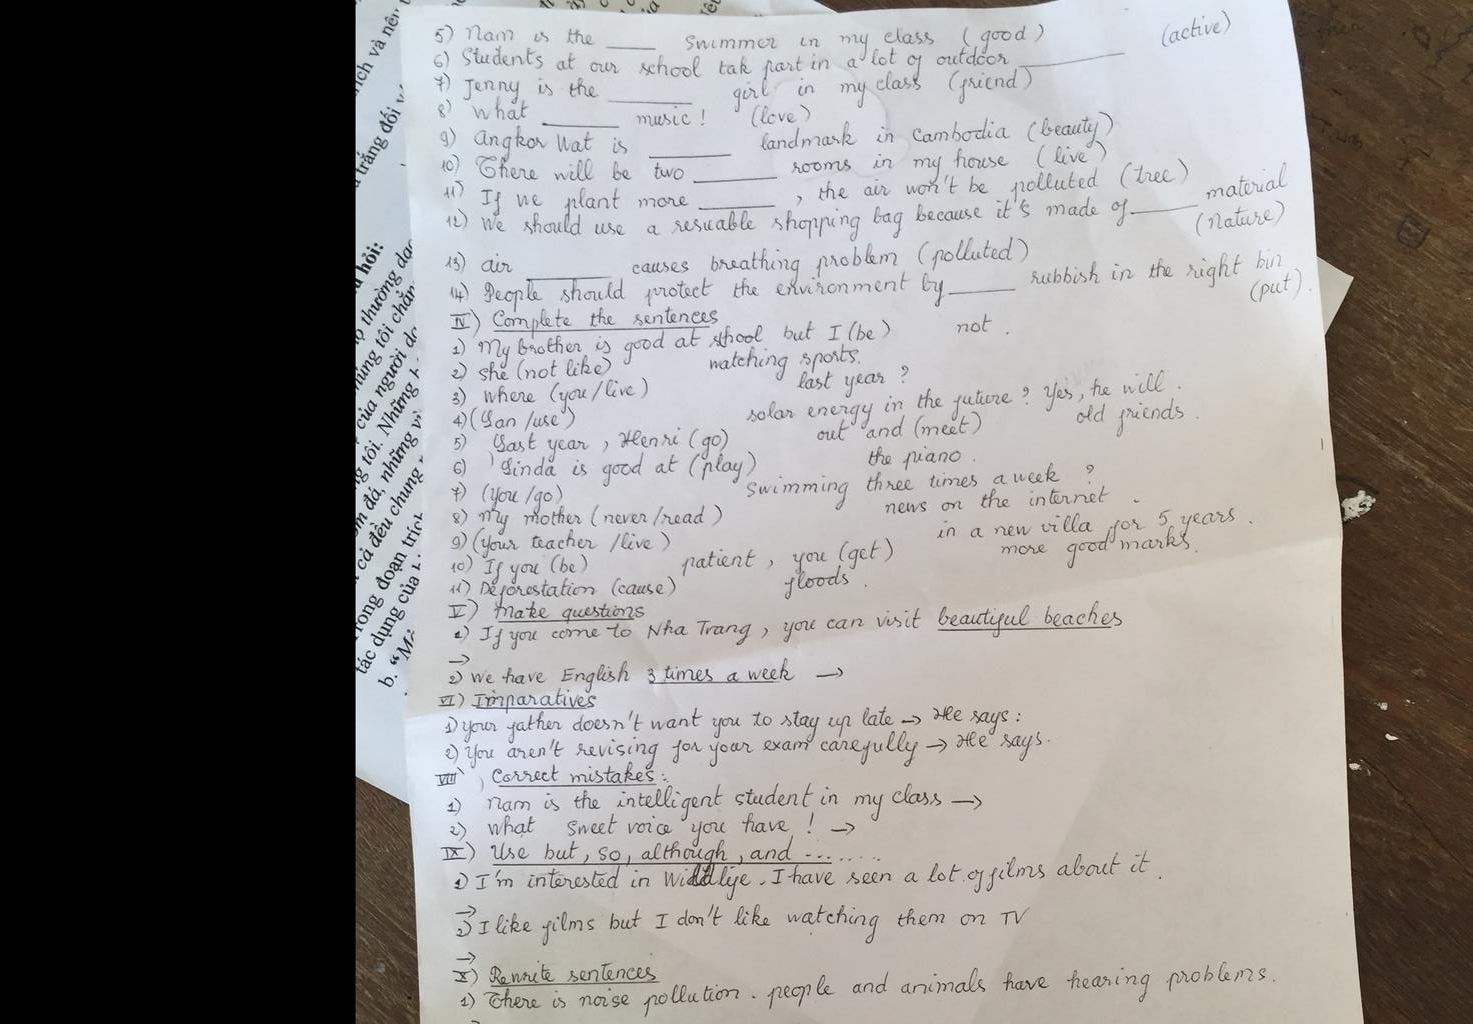 ích và nên
a trắng đối v
hỏi:
thường dạ
húng tôi chắn
của người dc
g tôi. Những
m đá, những v
cả đều chung
rong đoạn trích
tác dụng của
b. “M
5) Nam is the ____ swimmer in my class (good)
6) Students at our school tak part in a lot of outdoor ____ (active)
7) Jenny is the ____ girl in my class (friend)
8) What ____ music! (love)
9) Angkor Wat is ____ landmark in Cambodia (beauty)
10) There will be two ____ rooms in my house (live)
11) If we plant more ____, the air won't be polluted (tree)
12) We should use a resuable shopping bag because it's made of ____ material (nature)
13) air ____ causes breathing problem (polluted)
14) People should protect the environment by ____ rubbish in the right bin (put).
IV) Complete the sentences
1) My brother is good at shool but I (be) not.
2) she (not like) watching sports.
3) where (you/live) last year?
4) (Lan/use) solar energy in the future? Yes, he will.
5) Last year, Henri (go) out and (meet) old friends.
6) Linda is good at (play) the piano.
7) (you/go) swimming three times a week?
8) My mother (never/read) news on the internet.
9) (your teacher/live) in a new villa for 5 years.
10) If you (be) patient, you (get) more good marks.
11) Deforestation (cause) floods.
V) Make questions
1) If you come to Nha Trang, you can visit beautiful beaches
→
2) We have English 3 times a week →
VI) Imparatives
1) your father doesn't want you to stay up late → He says:
2) you aren't revising for your exam carefully → He says.
VIII) Correct mistakes:
1) Nam is the intelligent student in my class →
2) what sweet voice you have! →
IX) Use but, so, although, and .........
1) I'm interested in wildlife. I have seen a lot of films about it.
→
2) I like films but I don't like watching them on TV
→
X) Rewrite sentences
1) There is noise pollution. people and animals have hearing problems.